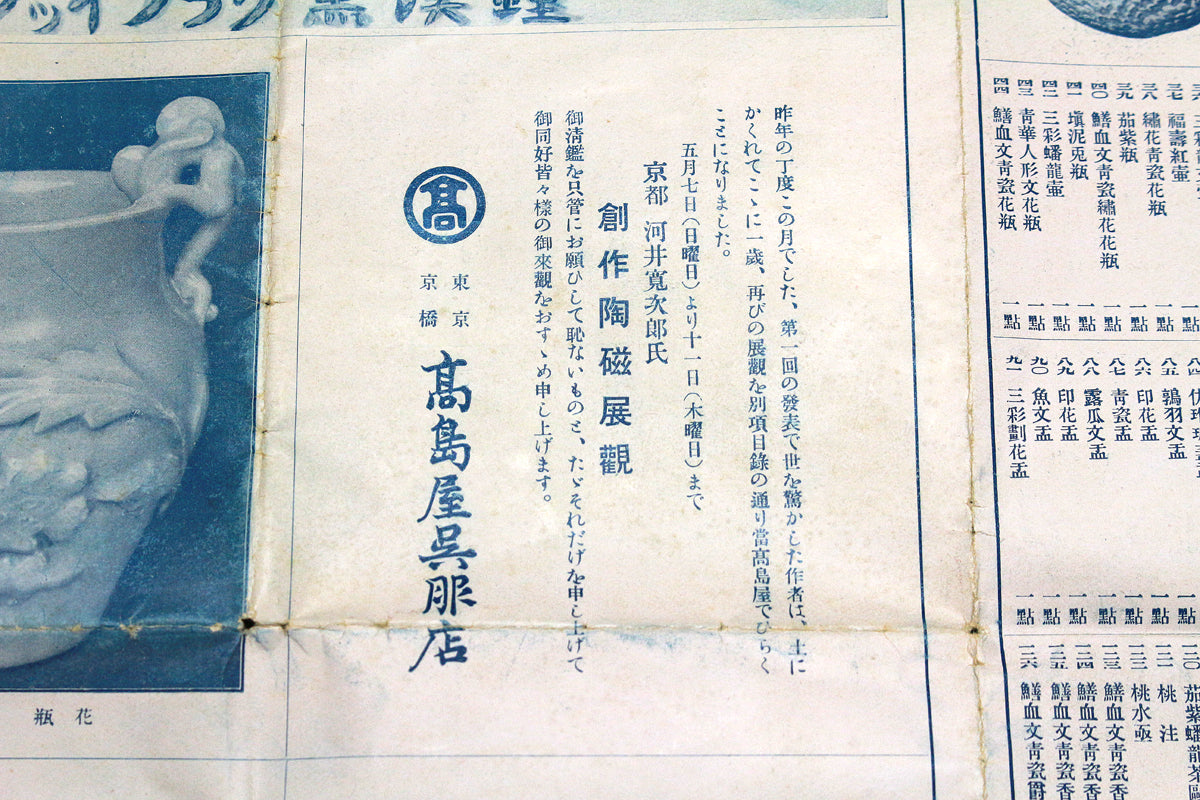 福壽紅壷
繡花靑瓷花瓶
茄紫瓶
鱔血文靑瓷繡花花瓶
塡泥兎瓶
三彩蟠龍壷
靑華人形文花瓶
鱔血文靑瓷花瓶
一點 一點 一點 一點 一點 一點 一點 一點
鶉羽文盂
印花盂
靑瓷盂
露瓜文盂
印花盂
魚文盂
三彩劃花盂
一點 一點 一點 一點 一點 一點 一點
桃注
桃水
鱔血文靑瓷
鱔血文靑瓷香
鱔血文靑瓷香
鱔血文靑瓷爵
昨年の丁度この月でした、第一回の發表で世を驚かした作者は、土に
かくれてこゝに一歲、再びの展觀を別項目錄の通り當髙島屋でひらく
ことになりました。
五月七日(日曜日)より十一日(木曜日)まで
京都 河井寬次郎氏
創作陶磁展觀
御淸鑑を只管にお願ひして恥ないものと、たゞそれだけを申し上げて
御同好皆々樣の御來觀をおすゝめ申し上げます。
髙
東京
京橋
髙島屋呉服店
花瓶